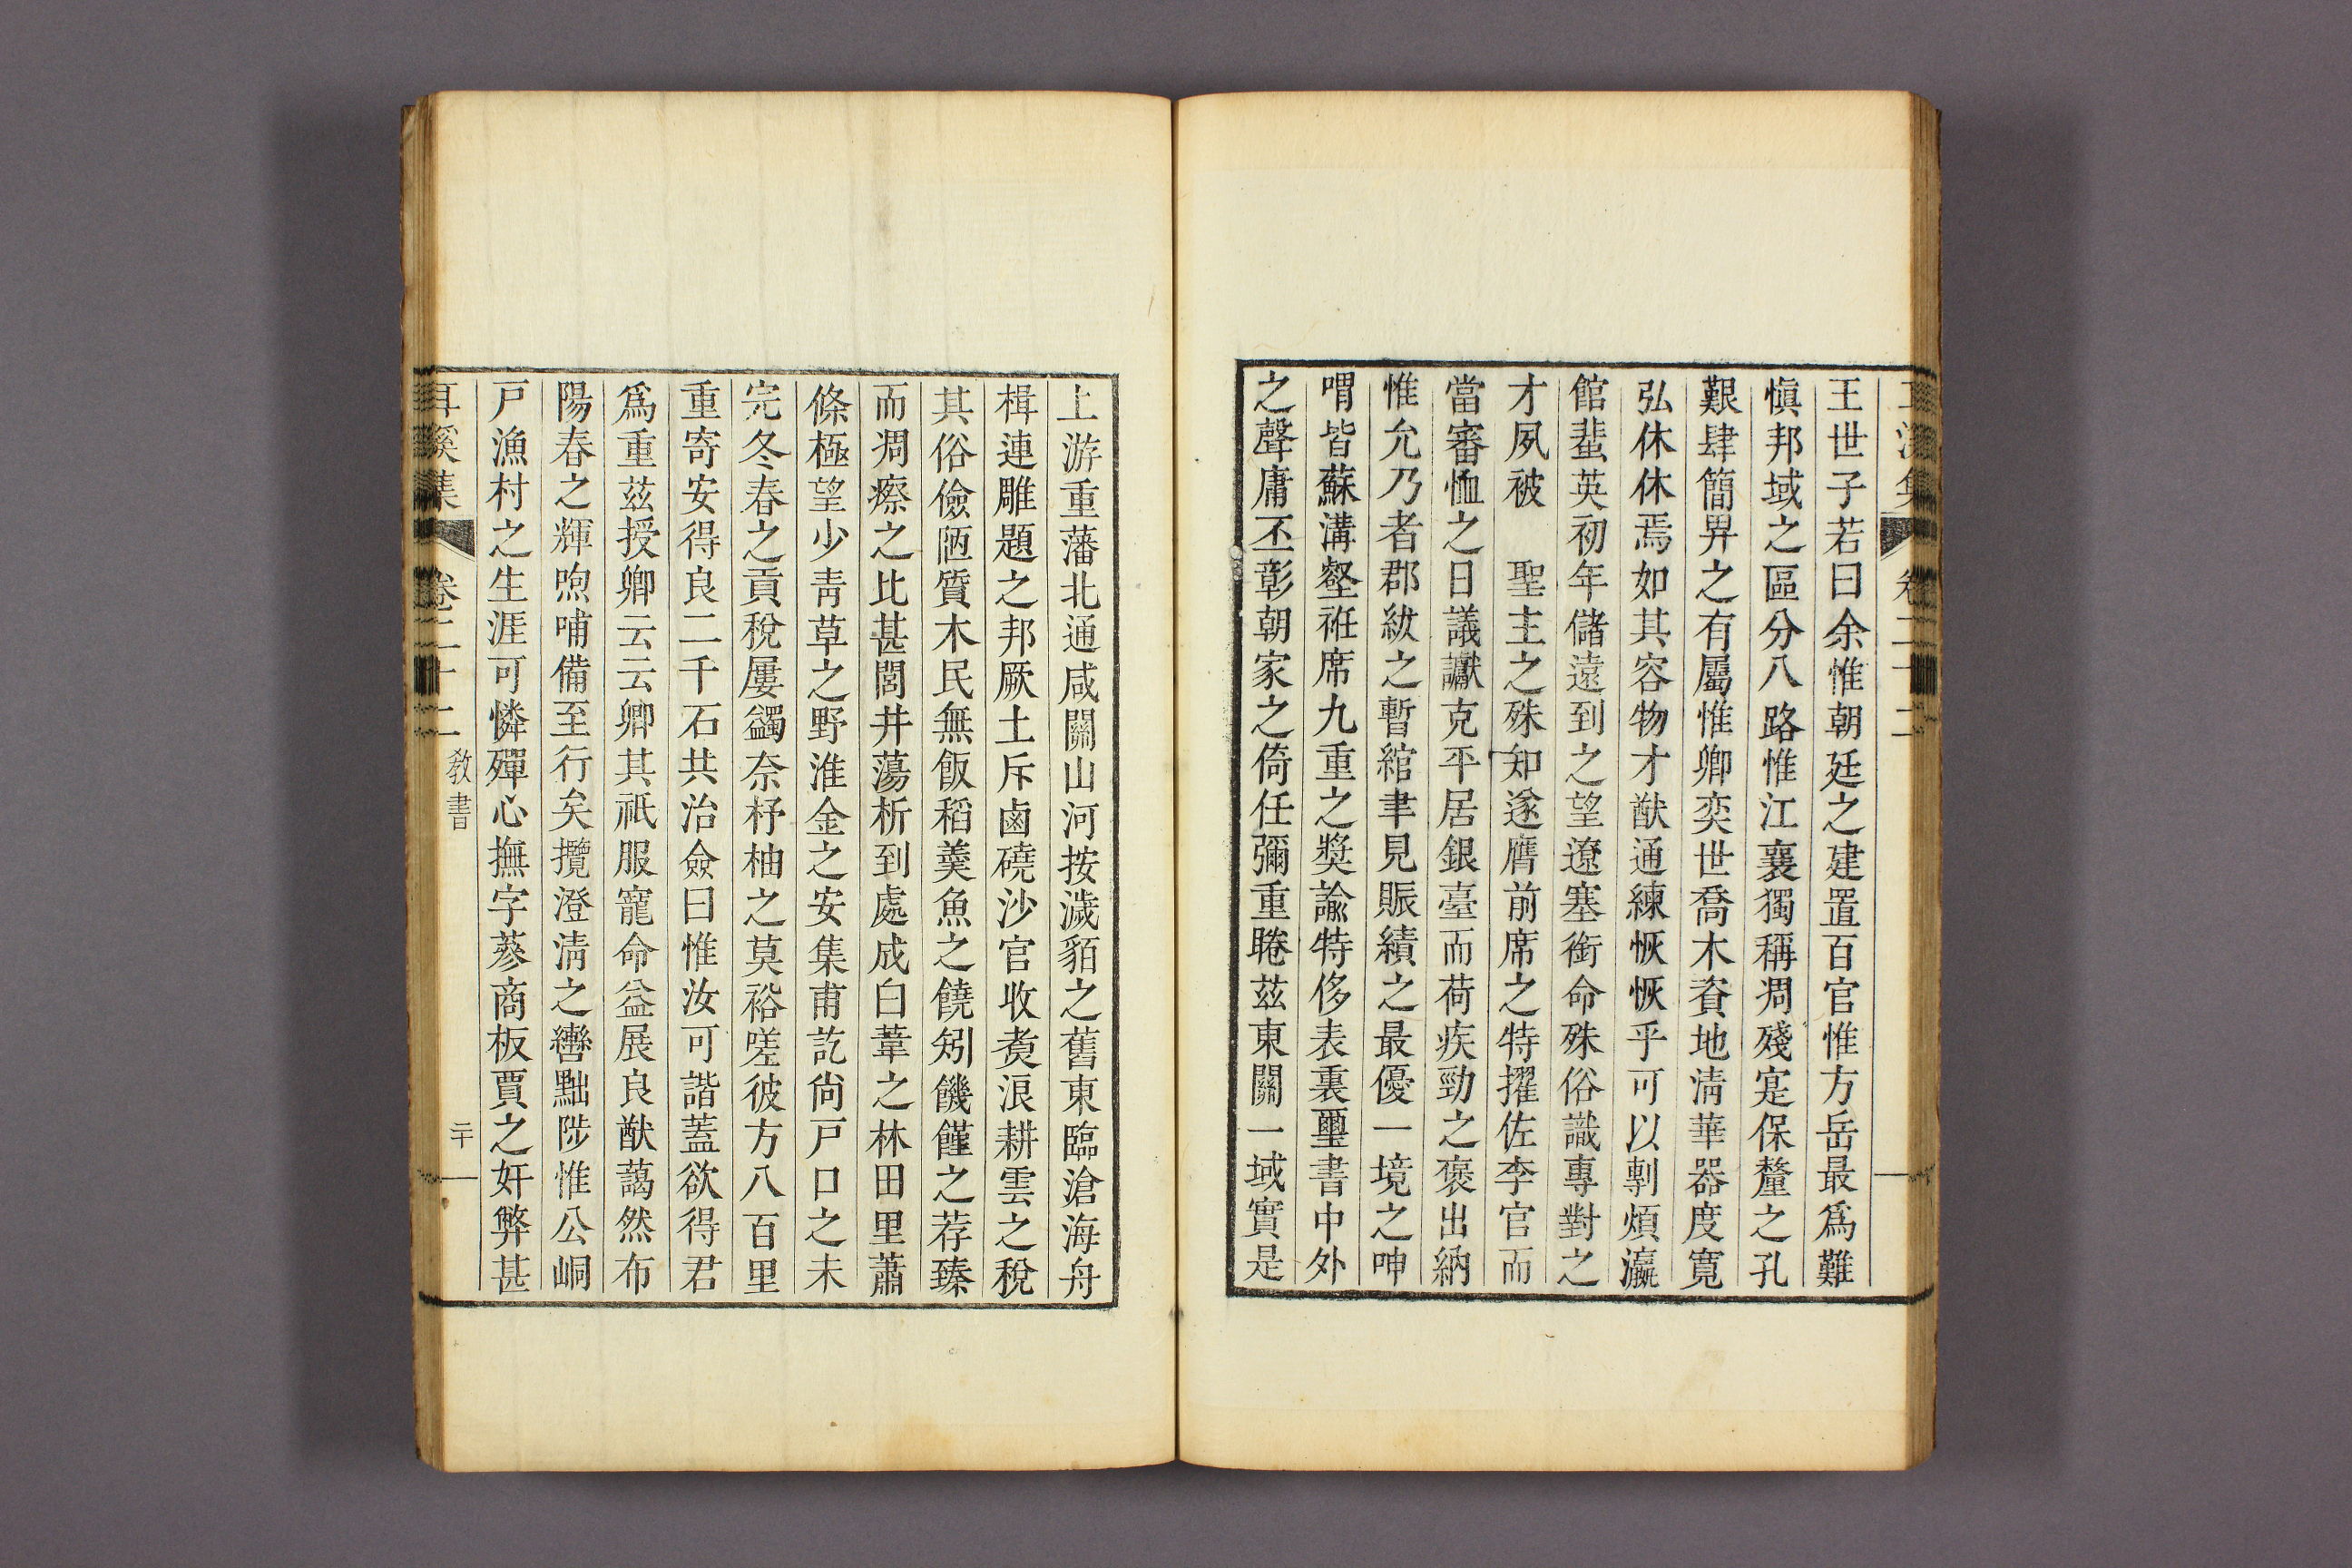 王世子若曰余惟朝廷之建置百官惟方岳最爲難
愼邦域之區分八路惟江襄獨稱凋殘寔保釐之孔
艱肆簡畀之有屬惟卿奕世喬木資地淸華器度寬
弘休休焉如其容物才猷通練恢恢乎可以剸煩瀛
館蜚英初年儲遠到之望遼塞銜命殊俗識專對之
才夙被 聖主之殊知遂膺前席之特擢佐李官而
當審恤之日議讞克平居銀臺而荷疾勁之褒出納
惟允乃者郡紱之暫綰聿見賑績之最優一境之呻
喟皆蘇溝壑袵席九重之奬諭特侈表裏璽書中外
之聲庸丕彰朝家之倚任彌重睠玆東關一域實是
上游重藩北通咸關山河按濊貊之舊東臨滄海舟
楫連雕題之邦厥土斥鹵磽沙官收煑浪耕雲之稅
其俗儉陋質木民無飯稻羹魚之饒矧饑饉之荐臻
而凋瘵之比甚閭井蕩析到處成白葦之林田里蕭
條極望少靑草之野淮金之安集甫訖尙戶口之未
完冬春之貢稅屢蠲奈杼柚之莫裕嗟彼方八百里
重寄安得良二千石共治僉曰惟汝可諧蓋欲得君
爲重玆授卿云云卿其祇服寵命益展良猷藹然布
陽春之輝煦哺備至行矣攬澄淸之轡黜陟惟公峒
戶漁村之生涯可憐殫心撫字蔘商板賈之奸弊甚
耳溪集 卷二十二 敎書 二十